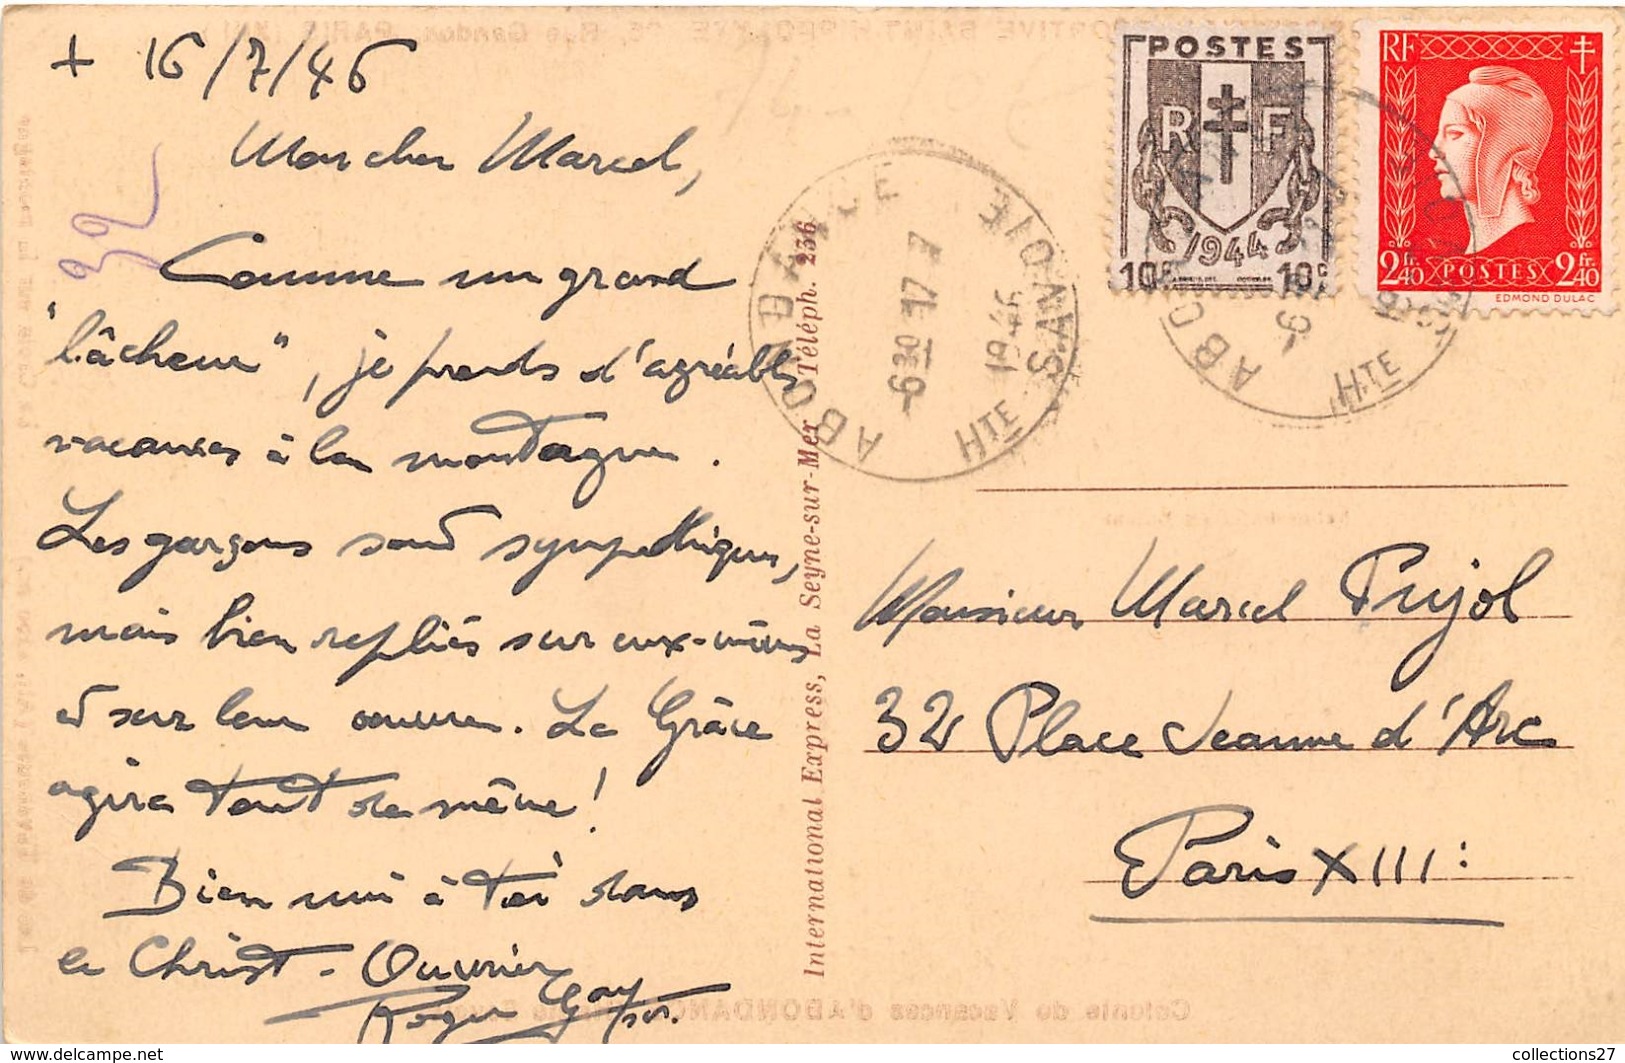 + 16/7/46
Mon cher Marcel,
32
Comme un grand
"lâcheur", je prends d'agréables
vacances à la montagne.
Les garçons sont sympathiques,
mais bien repliés sur eux-mêmes
et sur leur oeuvre. La Grâce
agira tout de même!
Bien uni à toi dans
le Christ-Ouvrier
Roger
International Express, La Seyne-sur-Mer Téléph. 236
ABONDANCE
HTE SAVOIE
-630 17 7
1946
POSTES
RF
1944
10c 10c
RF
2fr.40 POSTES 2fr.40
EDMOND DULAC
HTE
Monsieur Marcel Pujol
32 Place Jeanne d'Arc
Paris XIII:
Colonie de Vacances d'ABONDANCE
collections27